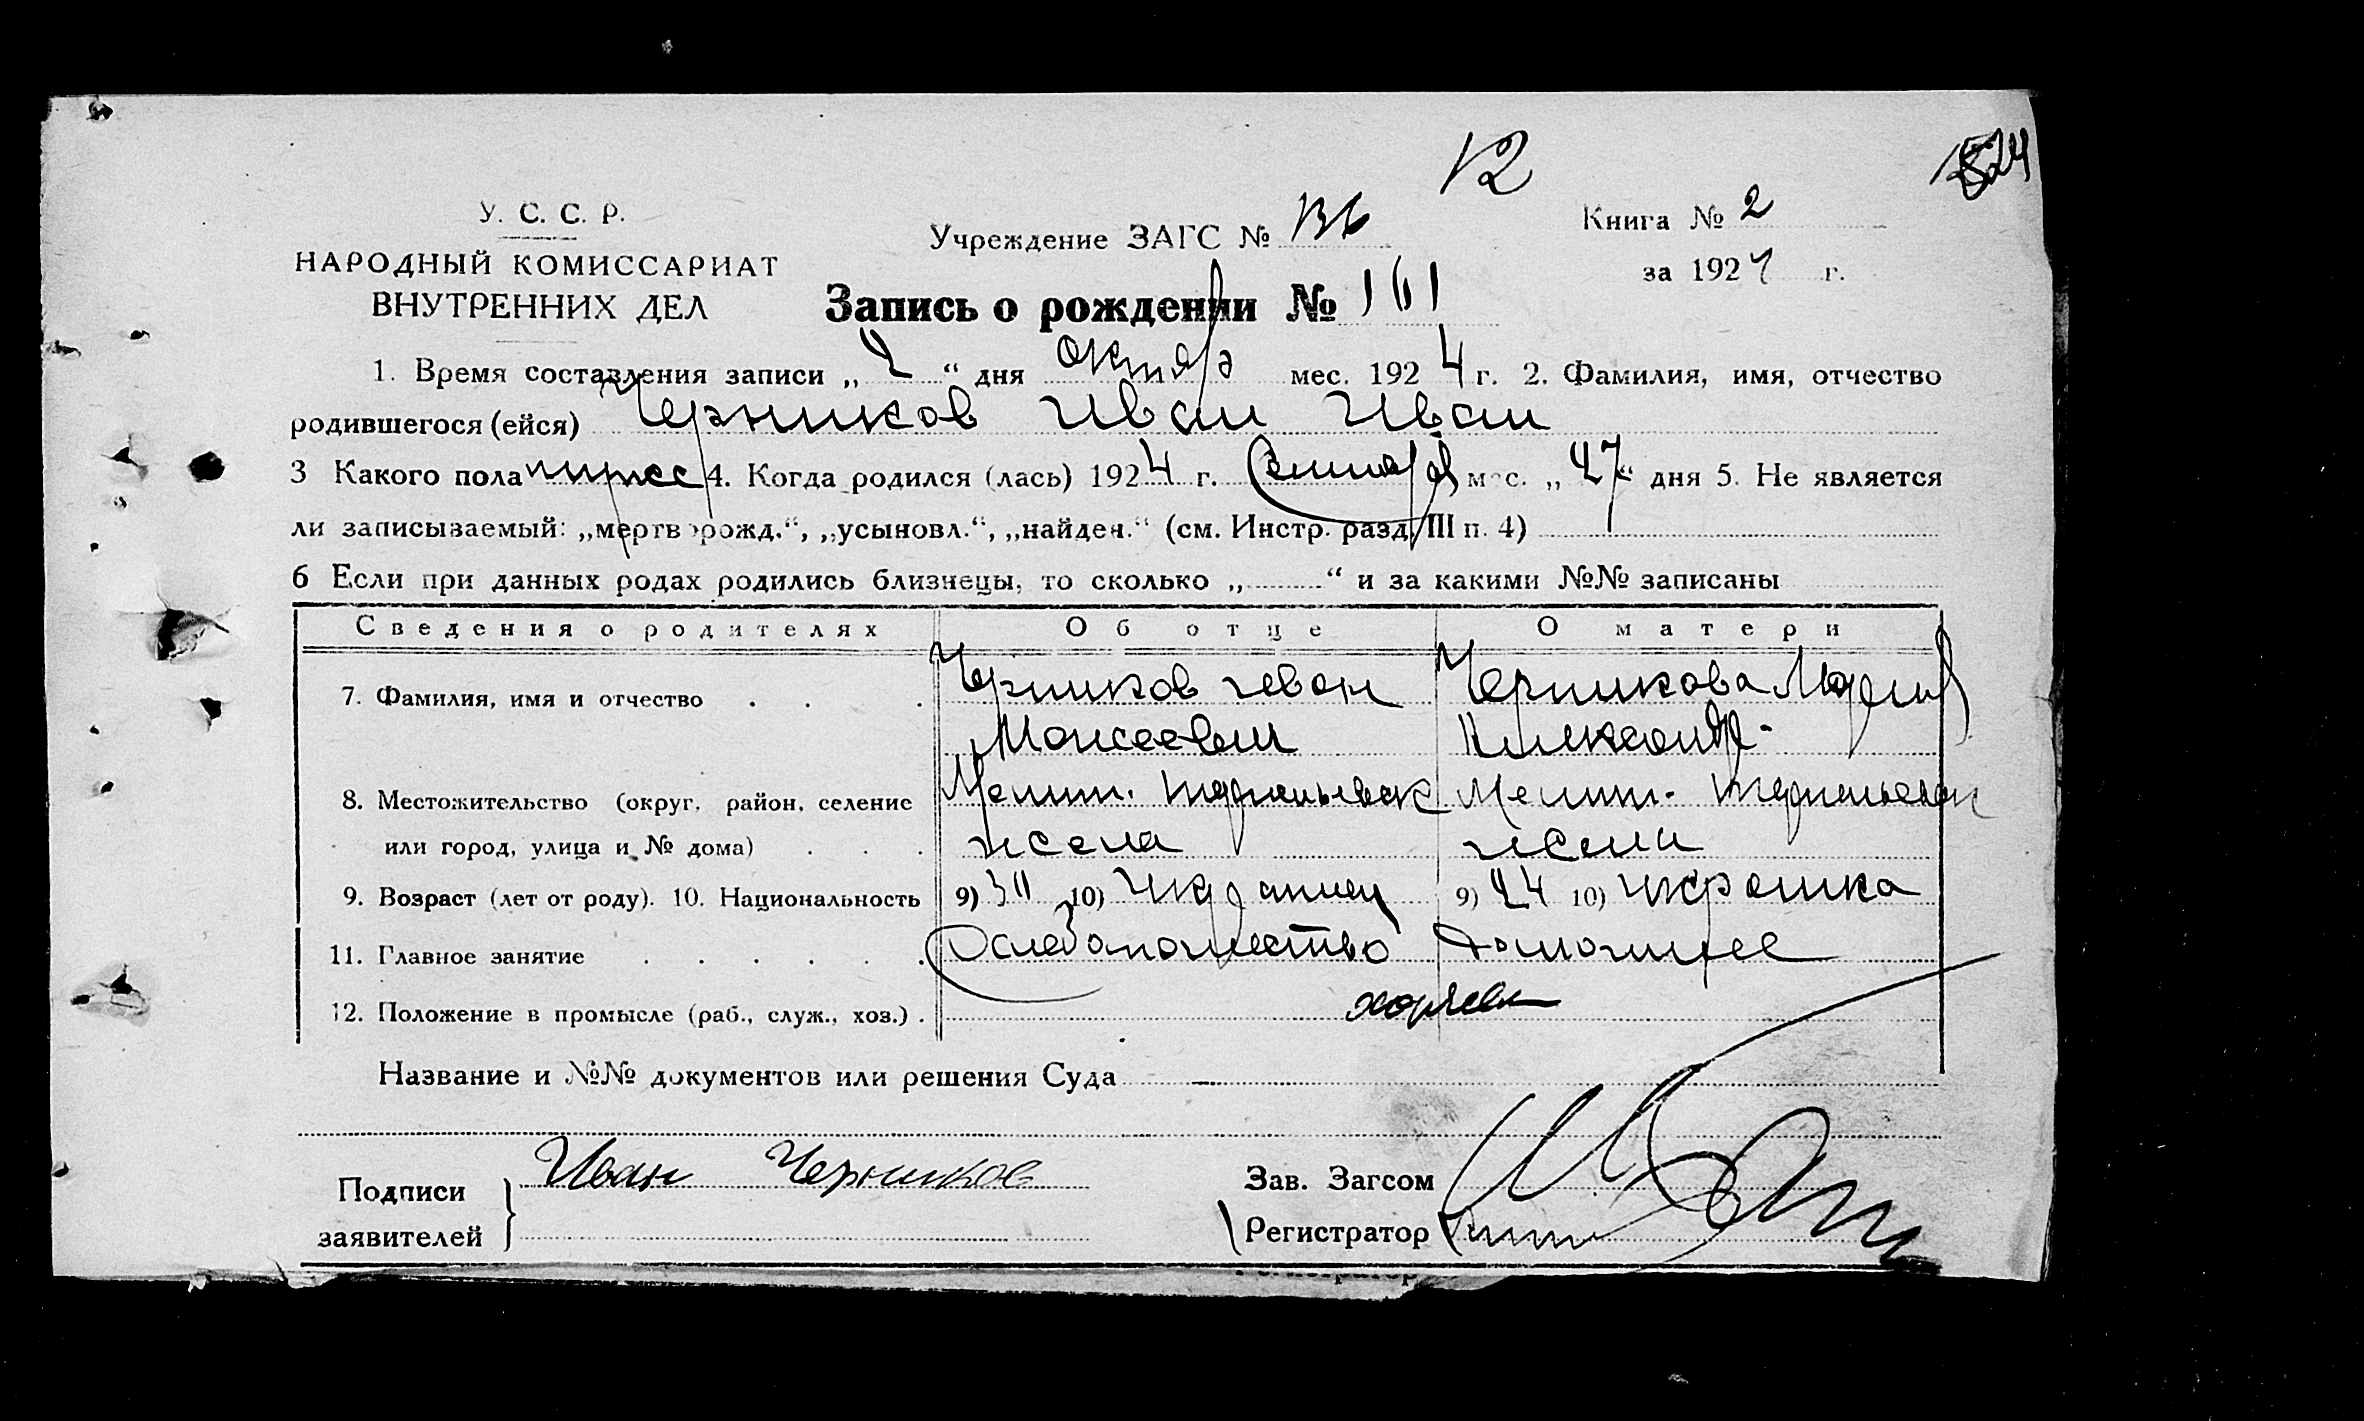 12
1524
У. С. С. Р.
НАРОДНЫЙ КОМИССАРИАТ
ВНУТРЕННИХ ДЕЛ
Учреждение ЗАГС №
Книга № 2
за 1924 г.
Запись о рождении № 161
1. Время составления записи „ 2 “ дня октяб мес. 1924 г. 2. Фамилия, имя, отчество
родившегося (ейся) Черников Иван Иван
3 Какого пола 4. Когда родился (лась) 1924 г. Сентября мес. „ 27 “ дня 5. Не является
ли записываемый: „мертворожд.“, „усыновл.“, „найден.“ (см. Инстр. разд. III п. 4)
6 Если при данных родах родились близнецы, то сколько „ “ и за какими №№ записаны
Сведения о родителях Об отце О матери
7. Фамилия, имя и отчество Черников Иван Черникова Мария
Моисеевич Александр-
8. Местожительство (округ, район, селение Мелит. Мелит.
или город, улица и № дома)
9. Возраст (лет от роду). 10. Национальность 9) 30 10) Украинец 9) 24 10) украинка
11. Главное занятие хлебопашество
12. Положение в промысле (раб., служ., хоз.) хозяев
Название и №№ документов или решения Суда
Подписи заявителей Иван Черников
Зав. Загсом
Регистратор